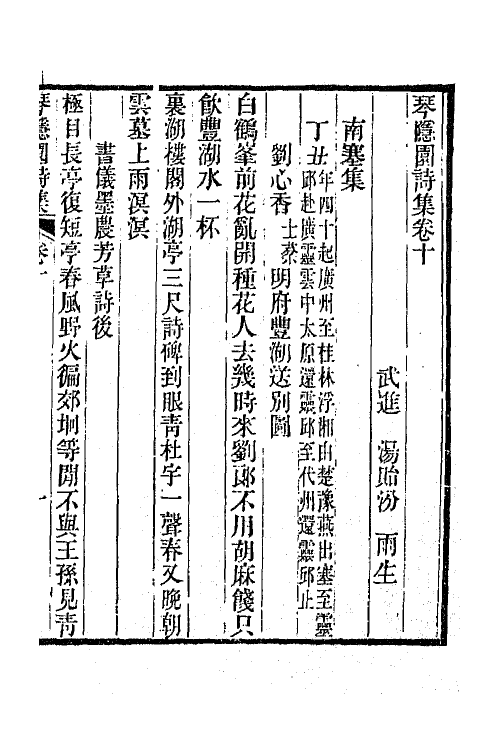 琴隱園詩集卷十
武進　湯貽汾　雨生
南塞集
丁丑年四十起廣州至桂林浮湘由楚豫燕出塞至靈
邱赴廣靈雲中太原還靈邱至代州還靈邱止
劉心香士棻明府豐湖送別圖
白鶴峯前花亂開種花人去幾時來劉郎不用胡麻餞只
飲豐湖水一杯
裏湖樓閣外湖亭三尺詩碑到眼靑杜宇一聲春又晚朝
雲墓上雨溟溟
書儀墨農芳草詩後
極目長亭復短亭春風野火徧郊坰等閒不與王孫見靑
琴隱園詩集　卷十　一